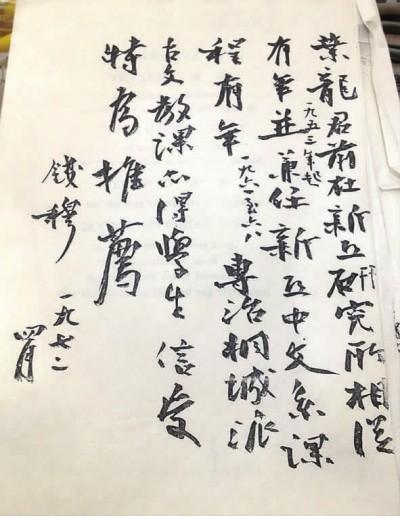 葉龍君前在新亞研究所相從
有年一九五三年起並兼任新亞中文系課
程有年一九六一至六八專治桐城派
古文教課亦得學生信受
特為推薦
錢穆
一九七二
四月